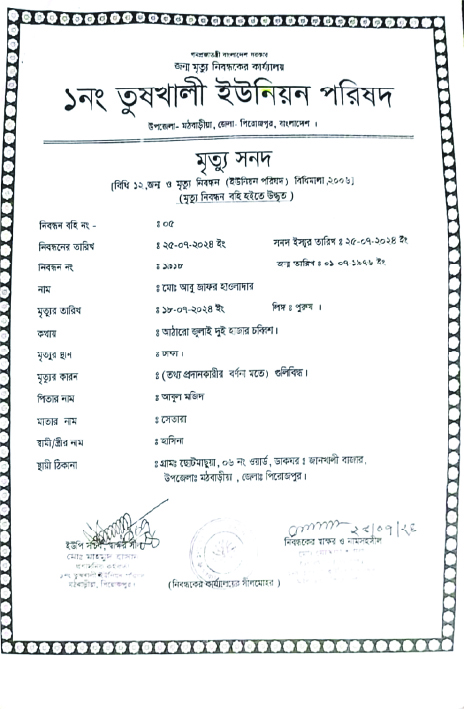 গণপ্রজাতন্ত্রী বাংলাদেশ সরকার
জন্ম মৃত্যু নিবন্ধকের কার্যালয়
১নং তুষখালী ইউনিয়ন পরিষদ
উপজেলা- মঠবাড়ীয়া, জেলা- পিরোজপুর, বাংলাদেশ ।
মৃত্যু সনদ
[বিধি ১২,জন্ম ও মৃত্যু নিবন্ধন (ইউনিয়ন পরিষদ) বিধিমালা,২০০৬]
(মৃত্যু নিবন্ধন বহি হইতে উদ্ধৃত)
নিবন্ধন বহি নং - ঃ ০৫
নিবন্ধনের তারিখ ঃ ২৫-০৭-২০২৪ ইং সনদ ইস্যুর তারিখ ঃ ২৫-০৭-২০২৪ ইং
নিবন্ধন নং জন্ম তারিখ ঃ ০১ ০৭ ১৯৭৬ ইং
নাম ঃ মোঃ আবু জাফর হাওলাদার
মৃত্যুর তারিখ ঃ ১৮-০৭-২০২৪ ইং লিঙ্গ ঃ পুরুষ ।
কথায় ঃ আঠারো জুলাই দুই হাজার চব্বিশ।
মৃত্যুর স্থান ঃ ঢাকা।
মৃত্যুর কারন ঃ (তথ্য প্রদানকারীর বর্ণনা মতে) গুলিবিদ্ধ।
পিতার নাম ঃ আবুল মজিদ
মাতার নাম ঃ সেতারা
স্বামী/স্ত্রীর নাম ঃ হাসিনা
স্থায়ী ঠিকানা ঃ গ্রামঃ ছোটমাছুয়া, ০৬ নং ওয়ার্ড, ডাকঘর ঃ জানখালী বাজার,
উপজেলাঃ মঠবাড়ীয়া , জেলাঃ পিরোজপুর।
ইউপি সচিব, স্বাক্ষর
মোঃ মাহমুদ হাসান
১নং তুষখালী ইউনিয়ন পরিষদ
মঠবাড়ীয়া, পিরোজপুর।
নিবন্ধকের স্বাক্ষর ও নামসহসীল
(নিবন্ধকের কার্য্যালয়ের সীলমোহর )